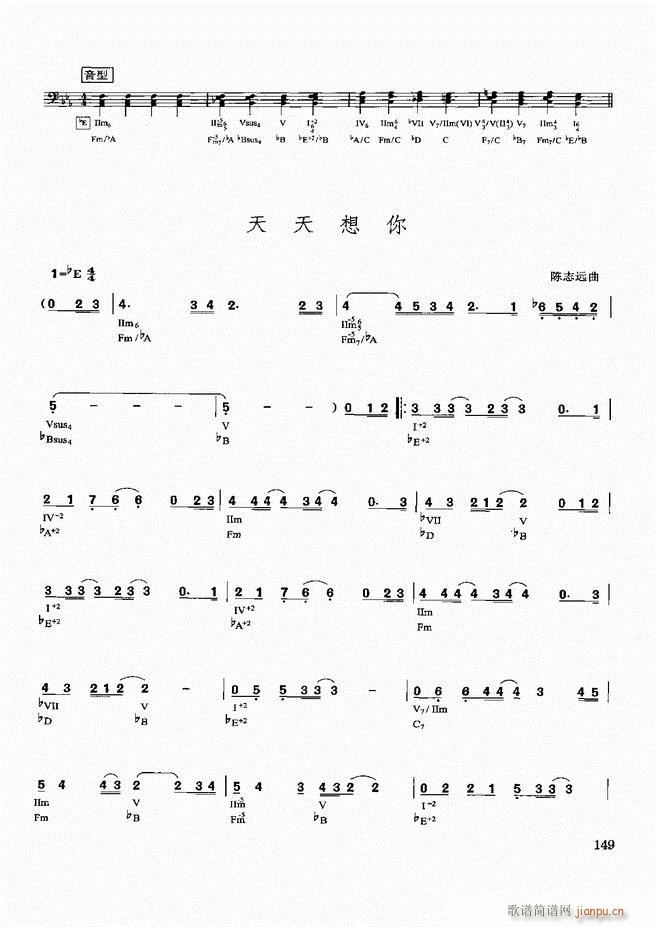 音型
♭E IIm₆ II⁻⁵m⁶₅ Vsus₄ V I⁺²₆₄ IV₆ IIm⁶₄ ♭VII V₇/IIm(VI) V⁴₃/V(II⁴₃) V₇ IIm⁴₃ I⁶₄
Fm/♭A Fm₇⁻⁵/♭A ♭Bsus₄ ♭B ♭E⁺²/♭B ♭A/C Fm/C ♭D C F₇/C ♭B₇ Fm₇/C ♭E/♭B
天 天 想 你
1=♭E 4/4 陈志远曲
(0 2 3 | 4. 3 4 2. 2 3 | 4 4 5 3 4 2. 1 | ♭6 5 4 2 |
IIm₆ IIm⁻⁵⁶₅
Fm/♭A Fm₇⁻⁵/♭A
5 - - - | 5 - - ) 0 1 2 |: 3 3 3 3 2 3 3 0. 1 |
Vsus₄ V I⁺²
♭Bsus₄ ♭B ♭E⁺²
2 1 7 6 6 0 2 3 | 4 4 4 4 3 4 4 0. 3 | 4 3 2 1 2 2 0 1 2 |
IV⁻² IIm ♭VII V
♭A⁺² Fm ♭D ♭B
3 3 3 3 3 2 3 3 0. 1 | 2 1 7 6 6 0 2 3 | 4 4 4 4 3 4 4 0. 3 |
I⁺² IV⁺² IIm
♭E⁺² ♭A⁺² Fm
4 3 2 1 2 2 - | 0 5 5 3 3 3 - | 0 6 6 4 4 4 3 4 5 |
♭VII V I⁺² V₇/IIm
♭D ♭B ♭E⁺² C₇
5 4 4 3 2 2 3 4 | 5 4 3 4 3 2 2 2 | 0 2 2 1 5 3 3 3 |
IIm V IIm⁻⁵ V I⁺²
Fm ♭B Fm⁻⁵ ♭B ♭E⁺²
149
歌谱简谱网 jianpu.cn